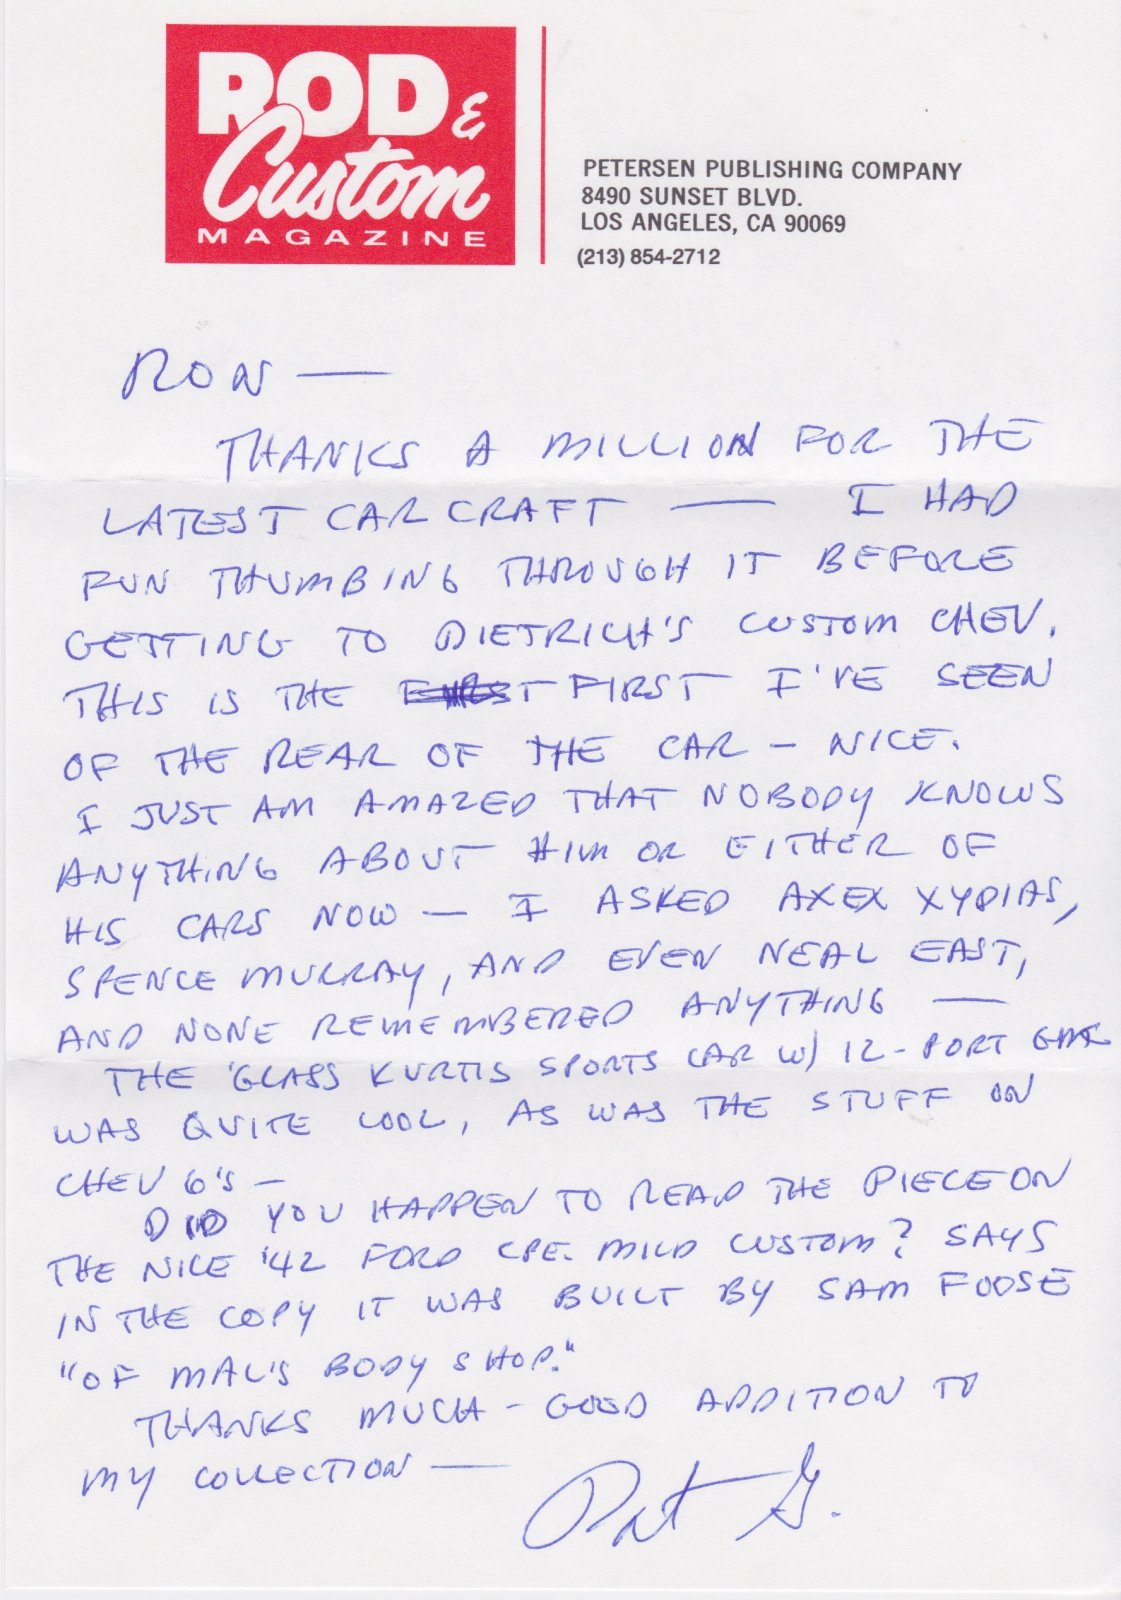 ROD &
Custom
MAGAZINE
PETERSEN PUBLISHING COMPANY
8490 SUNSET BLVD.
LOS ANGELES, CA 90069
(213) 854-2712
RON —
THANKS A MILLION FOR THE
LATEST CAR CRAFT — I HAD
FUN THUMBING THROUGH IT BEFORE
GETTING TO DIETRICH'S CUSTOM CHEV.
THIS IS THE FIRST I'VE SEEN
OF THE REAR OF THE CAR — NICE.
I JUST AM AMAZED THAT NOBODY KNOWS
ANYTHING ABOUT HIM OR EITHER OF
HIS CARS NOW — I ASKED AXEX XYDIAS,
SPENCE MURRAY, AND EVEN NEAL EAST,
AND NONE REMEMBERED ANYTHING —
THE 'GLASS KURTIS SPORTS CAR W/ 12-PORT GMC
WAS QUITE COOL, AS WAS THE STUFF ON
CHEV 6'S —
DID YOU HAPPEN TO READ THE PIECE ON
THE NICE '42 FORD CPE. MILD CUSTOM? SAYS
IN THE COPY IT WAS BUILT BY SAM FOOSE
"OF MAL'S BODY SHOP."
THANKS MUCH - GOOD ADDITION TO
MY COLLECTION —
Pat G.